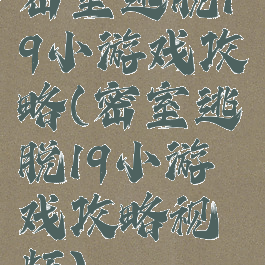 密室逃脱1
9小游戏攻
略(密室逃
脱19小游
戏攻略视
频)